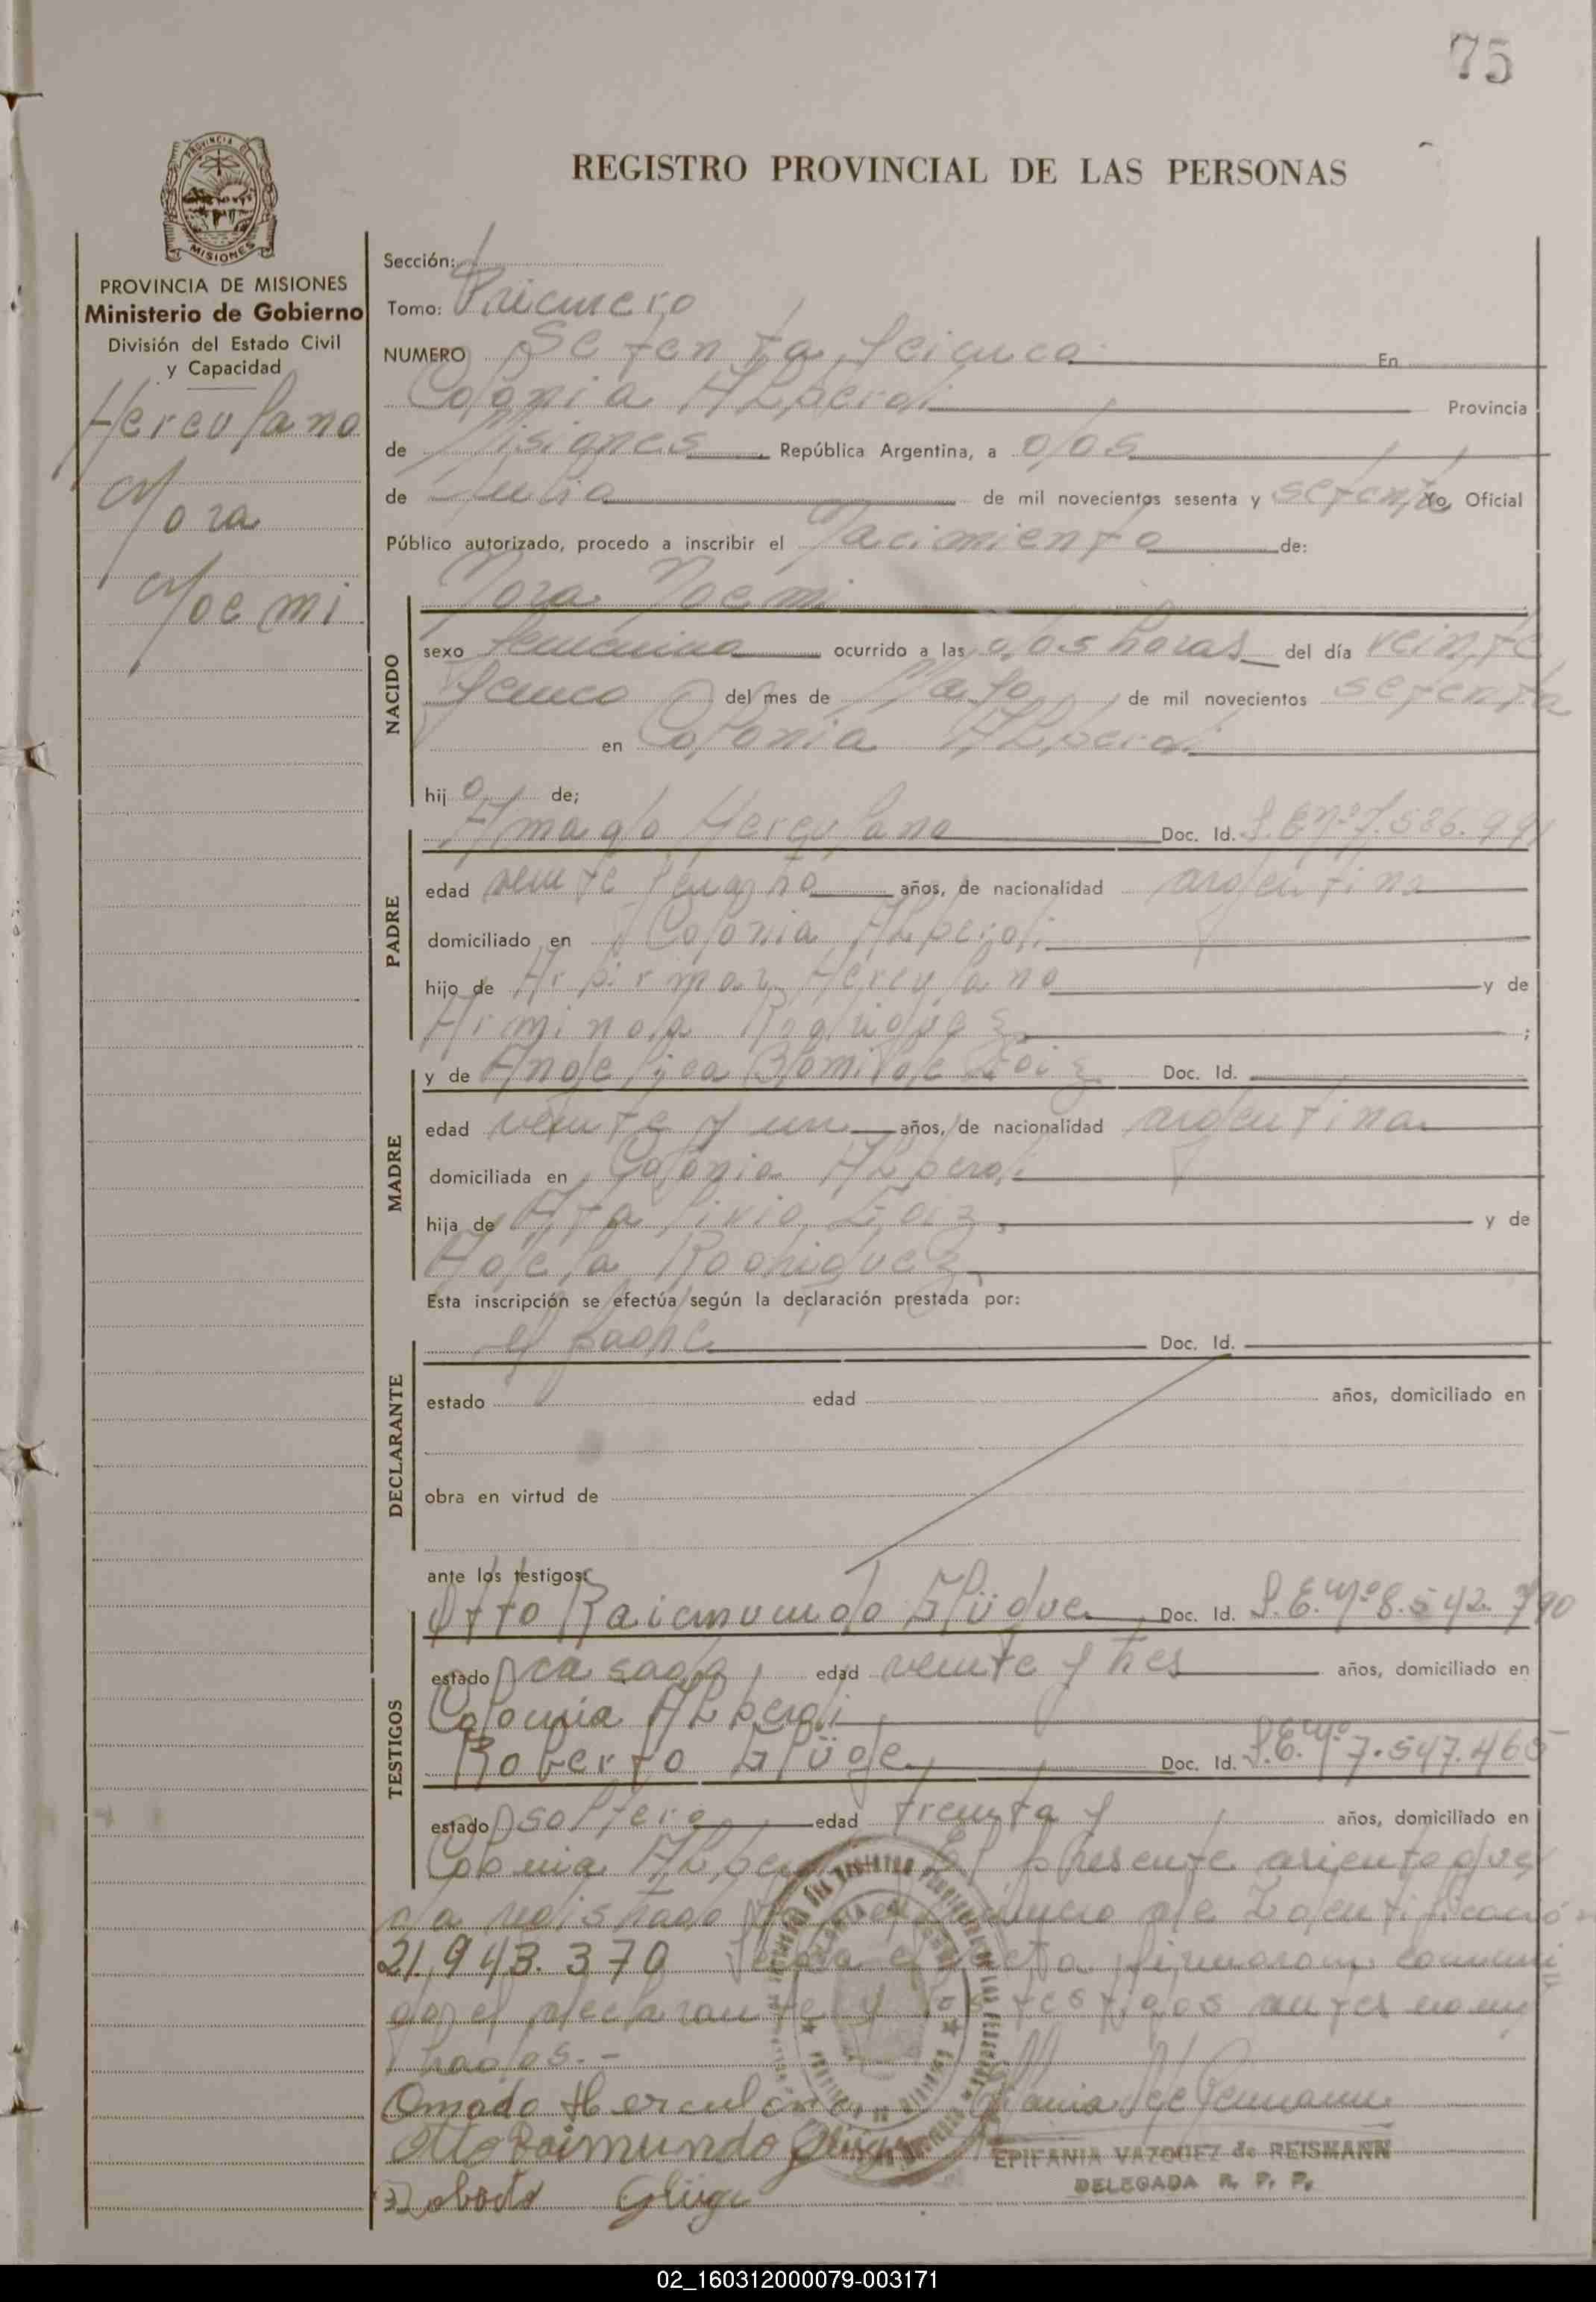 75
REGISTRO PROVINCIAL DE LAS PERSONAS
PROVINCIA DE MISIONES
Ministerio de Gobierno
División del Estado Civil
y Capacidad
Herculano
Nora
Noemi
Sección:
Tomo: Primero
NUMERO Setenta y cinco En
Colonia Alberdi Provincia
de Misiones República Argentina, a dos
de Julio de mil novecientos sesenta y setenta Yo, Oficial
Público autorizado, procedo a inscribir el Nacimiento de:
Nora Noemi
NACIDO
sexo femenino ocurrido a las dos horas del día veinte
y cinco del mes de Mayo de mil novecientos setenta
en Colonia Alberdi
hija de;
PADRE
Amado Herculano Doc. Id. L.E. Nº 7.586.991
edad veinte y cuatro años, de nacionalidad argentina
domiciliado en Colonia Alberdi
hijo de Herculano y de
Arminda Rodriguez ;
MADRE
y de Angelica Doc. Id.
edad veinte y un años, de nacionalidad argentina
domiciliada en Colonia Alberdi
hija de y de
Adela Rodriguez
Esta inscripción se efectúa según la declaración prestada por:
DECLARANTE
el padre Doc. Id.
estado edad años, domiciliado en
obra en virtud de
ante los testigos:
TESTIGOS
Otto Raimundo Doc. Id. L.E. Nº 8.542.790
estado casado edad veinte y tres años, domiciliado en
Colonia Alberdi
Roberto Glüge Doc. Id. L.E. Nº 7.547.465
estado soltero edad treinta y años, domiciliado en
Colonia Alberdi El presente asiento queda
registrado número de Identificación
21.943.370 Leida el acta firmaron conmi
go el declarante y los testigos antes nom
brados.-
Amado Herculano
Otto Raimundo Glüge
Roberto Glüge
EPIFANIA VAZQUEZ de REISMANN
DELEGADA R. P. P.
02_160312000079-003171